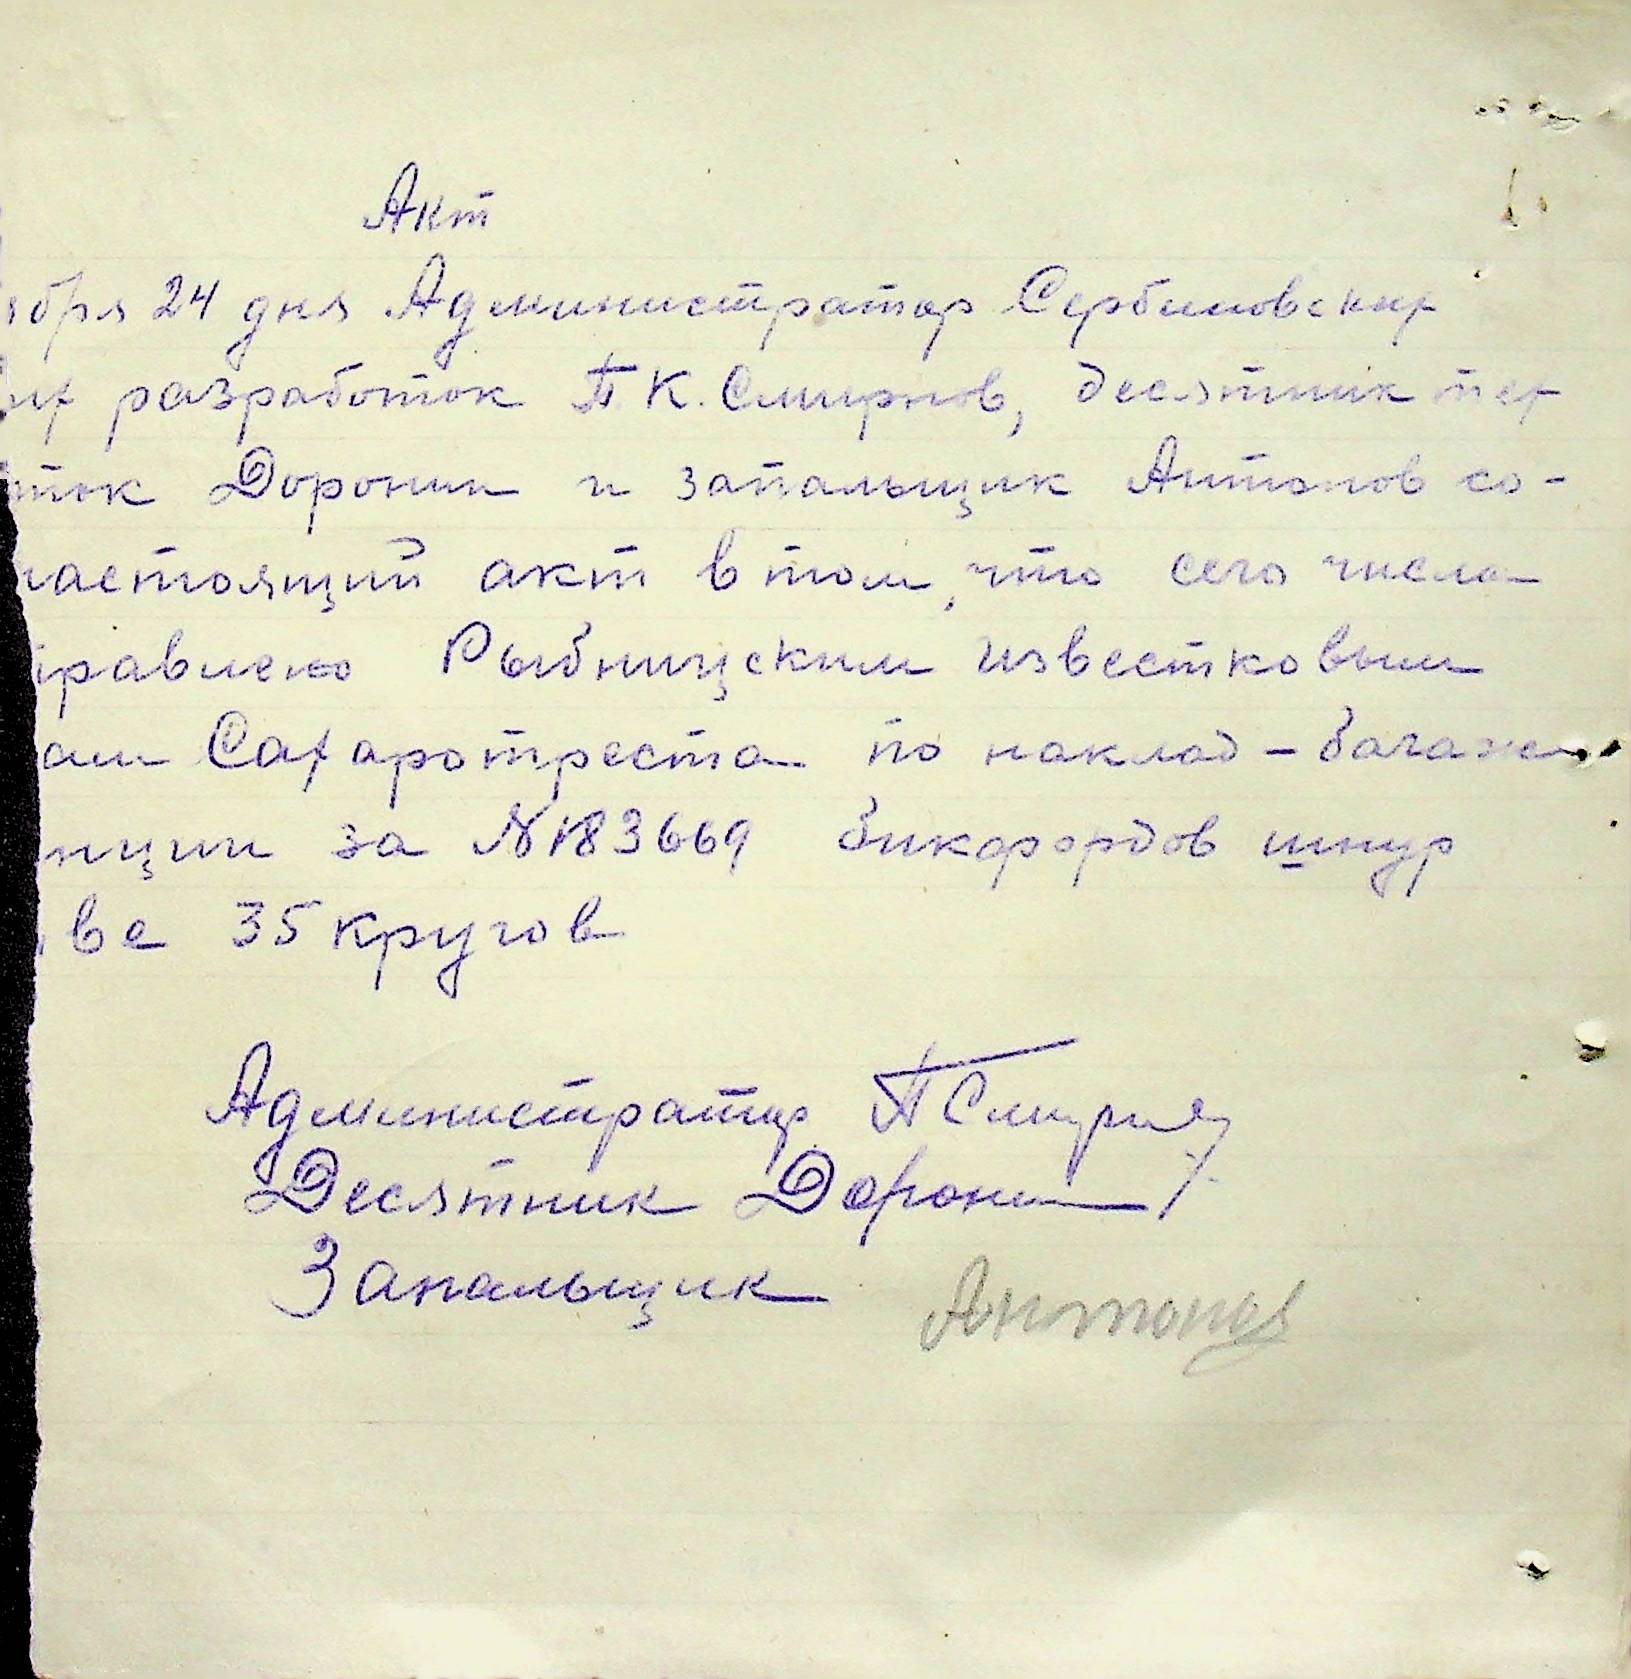 Акт
ября 24 дня Администратор Сербиновских
их разработок П. К. Смирнов, десятник тех
оток Доронин и запальщик Антонов со-
настоящий акт в том, что сего числа
правлено Рыбницким известковым
ам Сахаротреста по наклад - багажн
нции за N 183669 бикфордов шнур
ве 35 кругов
Администратор П Смирнов
Десятник Доронин
Запальщик Антонов